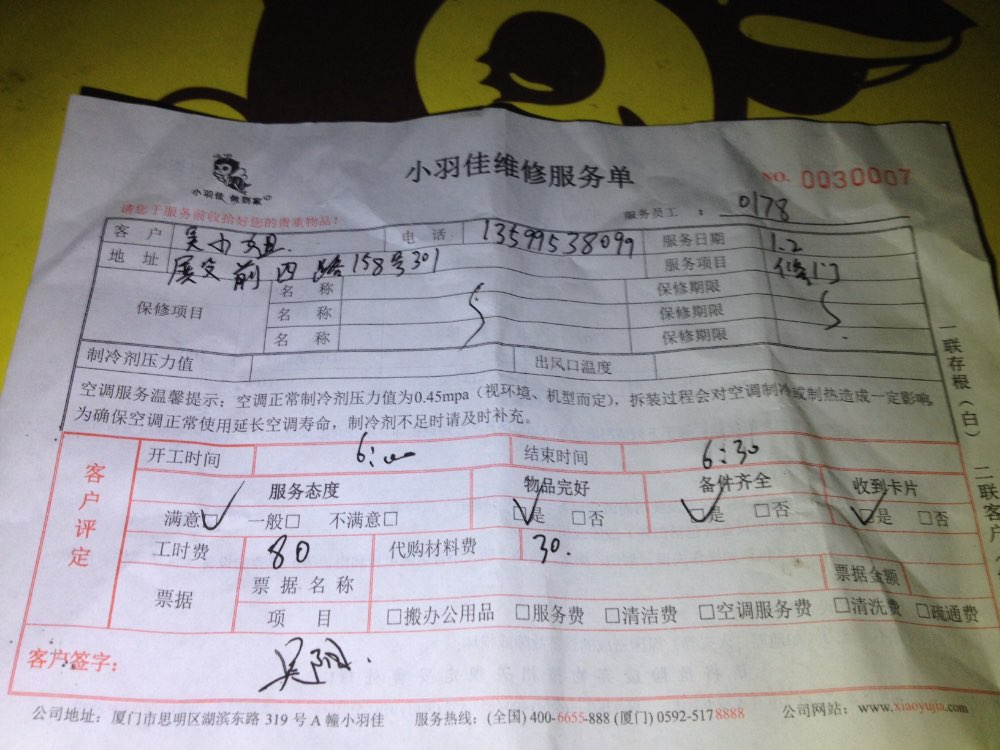 小羽佳 做到家
小羽佳维修服务单
NO. 0030007
请您于服务前收拾好您的贵重物品！
服务员工 ： 0178
客 户 吴小姐. 电 话 13599538099 服务日期 1.2
地 址 前 158号301 服务项目 修门
保修项目 名 称 保修期限
名 称 保修期限
名 称 保修期限
制冷剂压力值 出风口温度
空调服务温馨提示：空调正常制冷剂压力值为0.45mpa（视环境、机型而定），拆装过程会对空调制冷或制热造成一定影响，
为确保空调正常使用延长空调寿命，制冷剂不足时请及时补充。
客户评定
开工时间 6:00 结束时间 6:30
服务态度 物品完好 备件齐全 收到卡片
满意□ 一般□ 不满意□ □是 □否 □是 □否 □是 □否
工时费 80 代购材料费 30.
票据 票 据 名 称 票据金额
项 目 □搬办公用品 □服务费 □清洁费 □空调服务费 □清洗费 □疏通费
客户签字：
公司地址：厦门市思明区湖滨东路 319 号 A 幢小羽佳 服务热线：(全国) 400-6655-888 (厦门) 0592-5178888 公司网站：www.xiaoyujia.com
一联存根（白）
二联客户